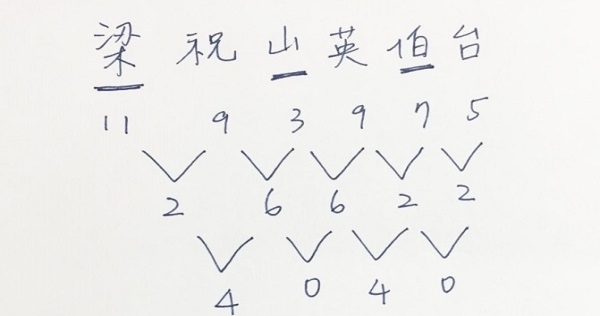 梁 祝 山 英 伯 台
11 9 3 9 7 5
2 6 6 2 2
4 0 4 0